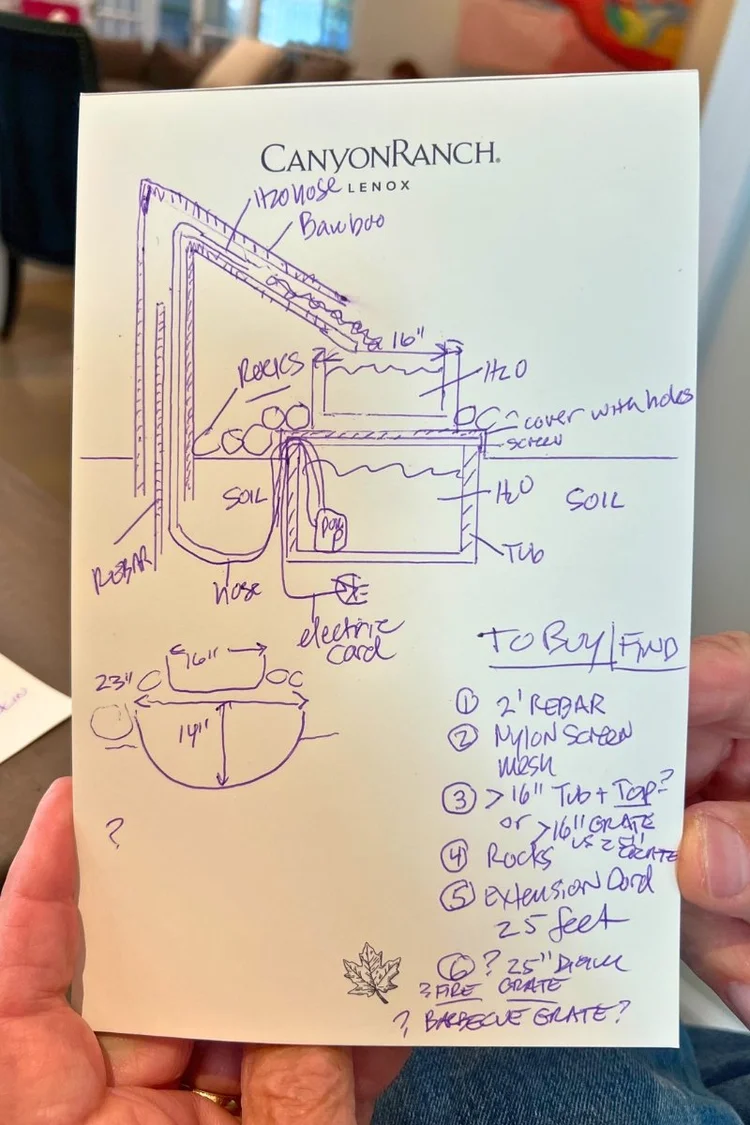 CANYONRANCH®
LENOX
H2O HOSE
Bamboo
16"
Rocks
H2O
cover with holes
screen
SOIL
H2O
SOIL
PUMP
Tub
REBAR
hose
electric
cord
TO BUY/FIND
16"
23"
14"
?
① 2' REBAR
② Nylon SCREEN
mesh
③ > 16" Tub + Top?
or >16" GRATE
vs 25" GRATE
④ Rocks
⑤ Extension Cord
25 feet
⑥ ? 25"
? FIRE GRATE
? BARBECUE GRATE?